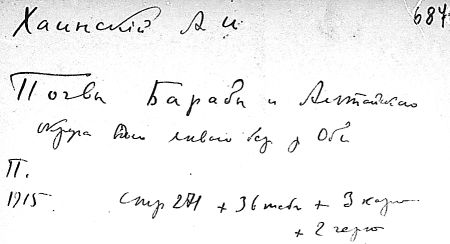 Хаинский А И 687
Почвы Барабы и Алтайского
округа лѣваго бер р Оби
П.
1915. стр 271 + 36 табл + 3 карт
+ 2 черт